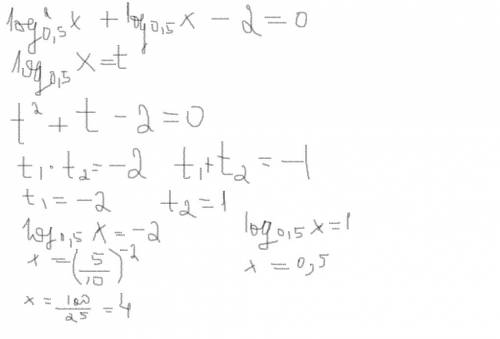 log²₀,₅x + log₀,₅x - 2 = 0
log₀,₅x = t
t² + t - 2 = 0
t₁ · t₂ = -2   t₁ + t₂ = -1
t₁ = -2   t₂ = 1
log₀,₅x = -2   log₀,₅x = 1
x = (5/10)⁻²   x = 0,5
x = 100/25 = 4